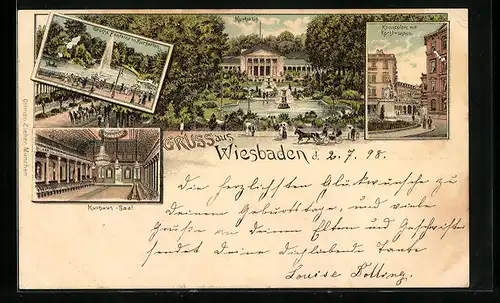 Grosse Fontaine im Kurgarten.
Kurhaus
Kranzplatz mit
Kochbrunnen.
GRUSS aus
Wiesbaden d. 2. 7. 98.
Kurhaus-Saal
Ottmar Zieher, München
Die herzlichsten Glückwünsche zu
Deinem Geburtstage, und viele
Grüße an Deine Eltern und Geschwister
sendet Deine Dichliebende Tante
Louise Dolling.